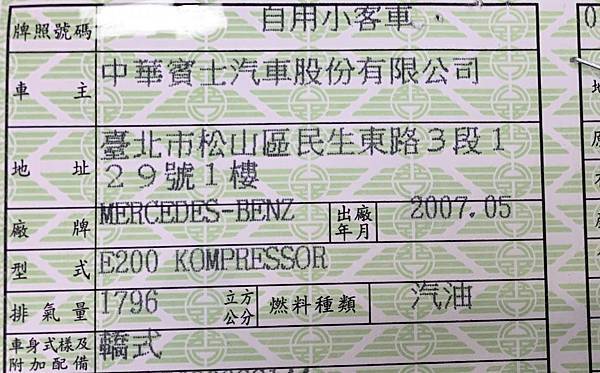 牌照號碼 自用小客車
車主 中華賓士汽車股份有限公司
地址 臺北市松山區民生東路3段1
29號1樓
廠牌 MERCEDES-BENZ 出廠年月 2007.05
型式 E200 KOMPRESSOR
排氣量 1796 立方公分 燃料種類 汽油
車身式樣及附加配備 轎式